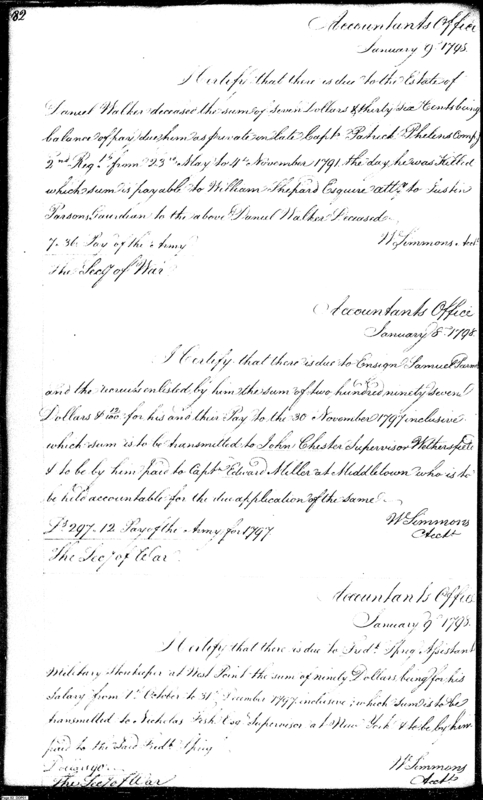 82
Accountants Office
January 9th 1798.
I Certify that there is due to the Estate of
Daniel Walker deceased the sum of seven Dollars & thirty six Cents being
balance of pay due him as private in late Capt. Patrick Phelons Comp
2nd Regt. from 23rd May to 4th November 1791, the day he was Killed
which sum is payable to William Shepard Esquire atty. to Justin
Parsons, Guardian to the above Daniel Walker Deceased
7.36 Pay of the Army
Wm Simmons Acct.
The Secy of War
Accountants Office
January 8. 1798.
I Certify that there is due to Ensign Samuel
and the recruits enlisted by him, the sum of two hundred ninety seven
Dollars & 12/100 for his and their Pay to the 30 November 1797 inclusive
which sum is to be transmitted to John Chester Supervisor Wethersfield
& to be by him paid to Captn Edward Miller at Middletown who is to
be held accountable for the due application of the same
Ds 297.12 Pay of the Army for 1797
Wm Simmons
Acctt
The Secy of War
Accountants Office
January 9th 1798.
I Certify that there is due to Fredk. Spreg Assistant
Military Storekeeper at West Point the sum of ninety Dollars being for his
Salary from 1st October to 31st December 1797 inclusive, which sum is to be
transmitted to Nicholas Fish Esq Supervisor at New York & to be by him
paid to the said Fredk. Spreg
Dollars 90
Wm Simmons
Acctt
The Secy of War